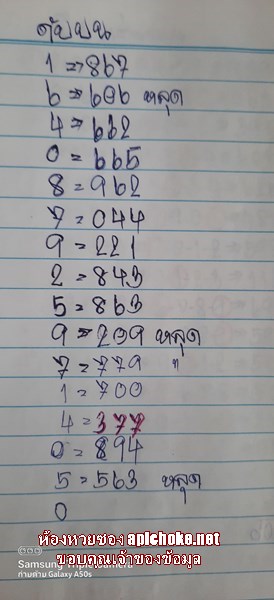 ดับบน
1 => 867
6 => 696 หลุด
4 = 662
0 = 665
8 = 962
7 = 044
9 = 221
2 = 843
5 = 863
9 => 209 หลุด
7 = 779 "
1 = 700
4 = 377
0 = 894
5 = 563 หลุด
0
ห้องหวยซอง apichoke.net
ขอบคุณเจ้าของข้อมูล
Samsung Triple Camera
ถ่ายด้วย Galaxy A50s